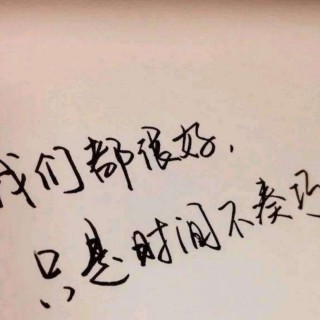 我们都很好,
只是时间不凑巧